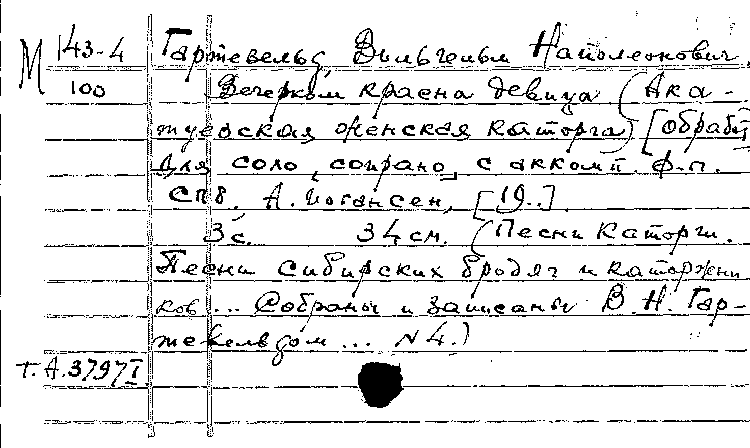 М 143-4 Гартевельд, Вильгельм Наполеонович.
100 Вечерком красна девица (Ака-
туевская женская каторга) [обработ
для соло [сопрано] с аккомп. ф-п.
СПб., А. Иогансен, [19..]
3 с. 34 см. (Песни каторги.
Песни сибирских бродяг и каторжни
ков ... Собраны и записаны В. Н. Гар-
тевельдом ... N 4.)
т.А.3797I